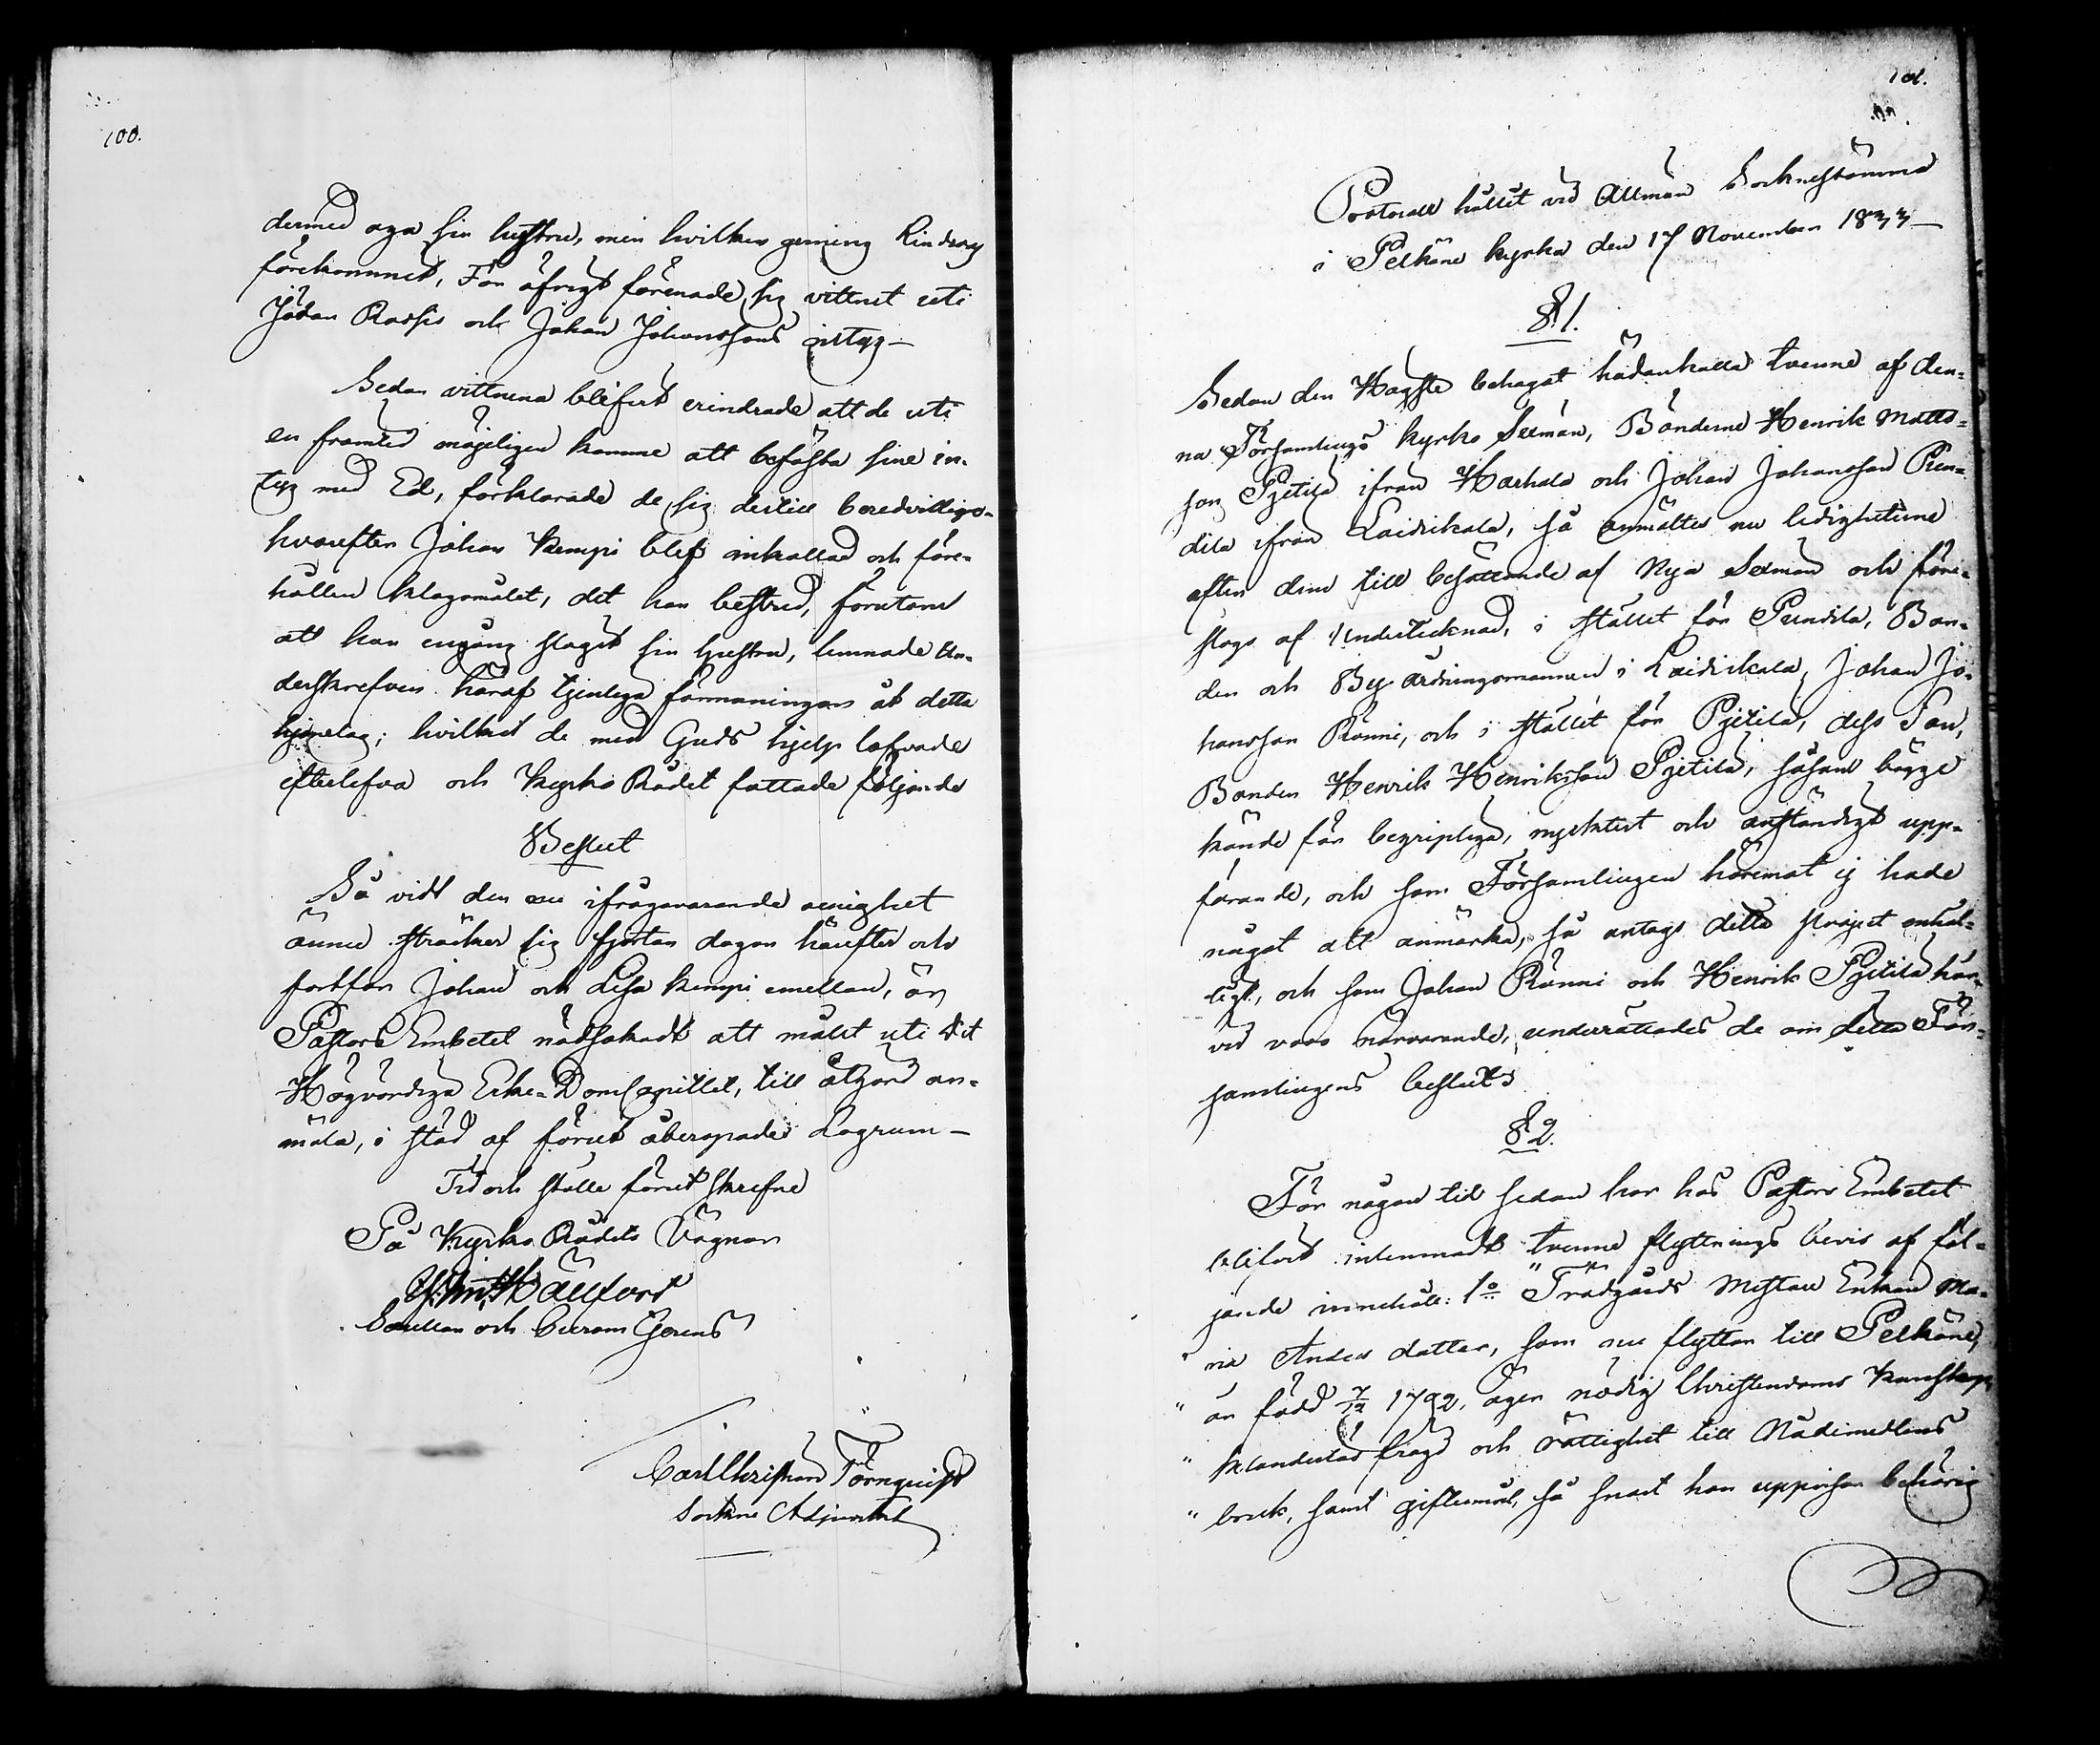 100.
dermed aga sin hustru, men hvilken gerning Lindroos
förekommit, För öfrigt förenade sig vittnet uti
Johan Rassis och Johan Johanssons intyg—
Sedan vittnena blifvit erindrade att de uti
en framtid möjeligen komme att befästa sine in-
tyg med Ed, förklarade de sig dertill beredvillige-
hvarefter Johan Kempi blef inkallad och före-
hållen klagomålet, det han bestred, förutom
att han engång slagit sin hustru, lemnade un-
derskrefven häraf tjenliga förmaningar åt detta
hjonelag; hvilket de med Guds hjelp lofvade
efterlefva och Kyrko Rådet fattade följande
Beslut
Så vidt den nu ifrågavarande oenighet
ännu sträcker sig fjorton dagar härefter och
fortfar Johan och Lisa Kempi emellan, är
Pastors Embetet nödsakadt att målet uti Det
Högvördiga Erke-DomCapitlet, till åtgärd an-
mäla, i stöd af förut åberopade Lagrum—
Tid och ställe förut skrefne
På Kyrko Rådets Vägnar
Hällfors
Capellan och Curam Gerens
Carl Christian Törnquist
Sockne Adjunct
101.
Protocoll hållet vid Allmän Socknestämma
i Pelkäne kyrka den 17 November 1833—
§ 1.
Sedan den Högste behagat hädankalla tvenne af den-
na Församlings kyrko Sexmän, Bönderne Henrik Matts-
son Pjetilä ifrån Harhala och Johan Johansson Pun-
dila ifrån Laidikala, så anmältes nu ledigheterne
efter dem till besättande af Nya Sexmän och före-
slogs af Undertecknad, i stället för Pundila, Bon-
den och By ordningsmannen i Laidikala, Johan Jo-
hansson Rönni, och i stället för Pjetilä, dess Son,
Bonden Henrik Henriksson Pjetilä, såsom bägge
kände för begripliga, nycktert och anständigt upp-
förande, och som Församlingen häremot ej hade
något att anmärka, så antogs detta project enhäl-
ligt, och som Johan Rönni och Henrik Pjetilä här-
vid voro närvarande, underrättades de om detta För-
samlingens beslut
§ 2.
För någon tid sedan har hos Pastors Embetet
blifvit inlemnadt tvenne flyttnings bevis af föl-
jande innehåll: 1o "Trädgårds Mästare Enkan Ma-
" ria Anders dotter, som nu flyttar till Pelkäne,
" är född 7/12 1792, äger nödig Christendoms kunskap,
" klanderlös frägd och rättighet till Nådemedlens
" bruk, samt giftermål, så snart hon uppvisar behörig